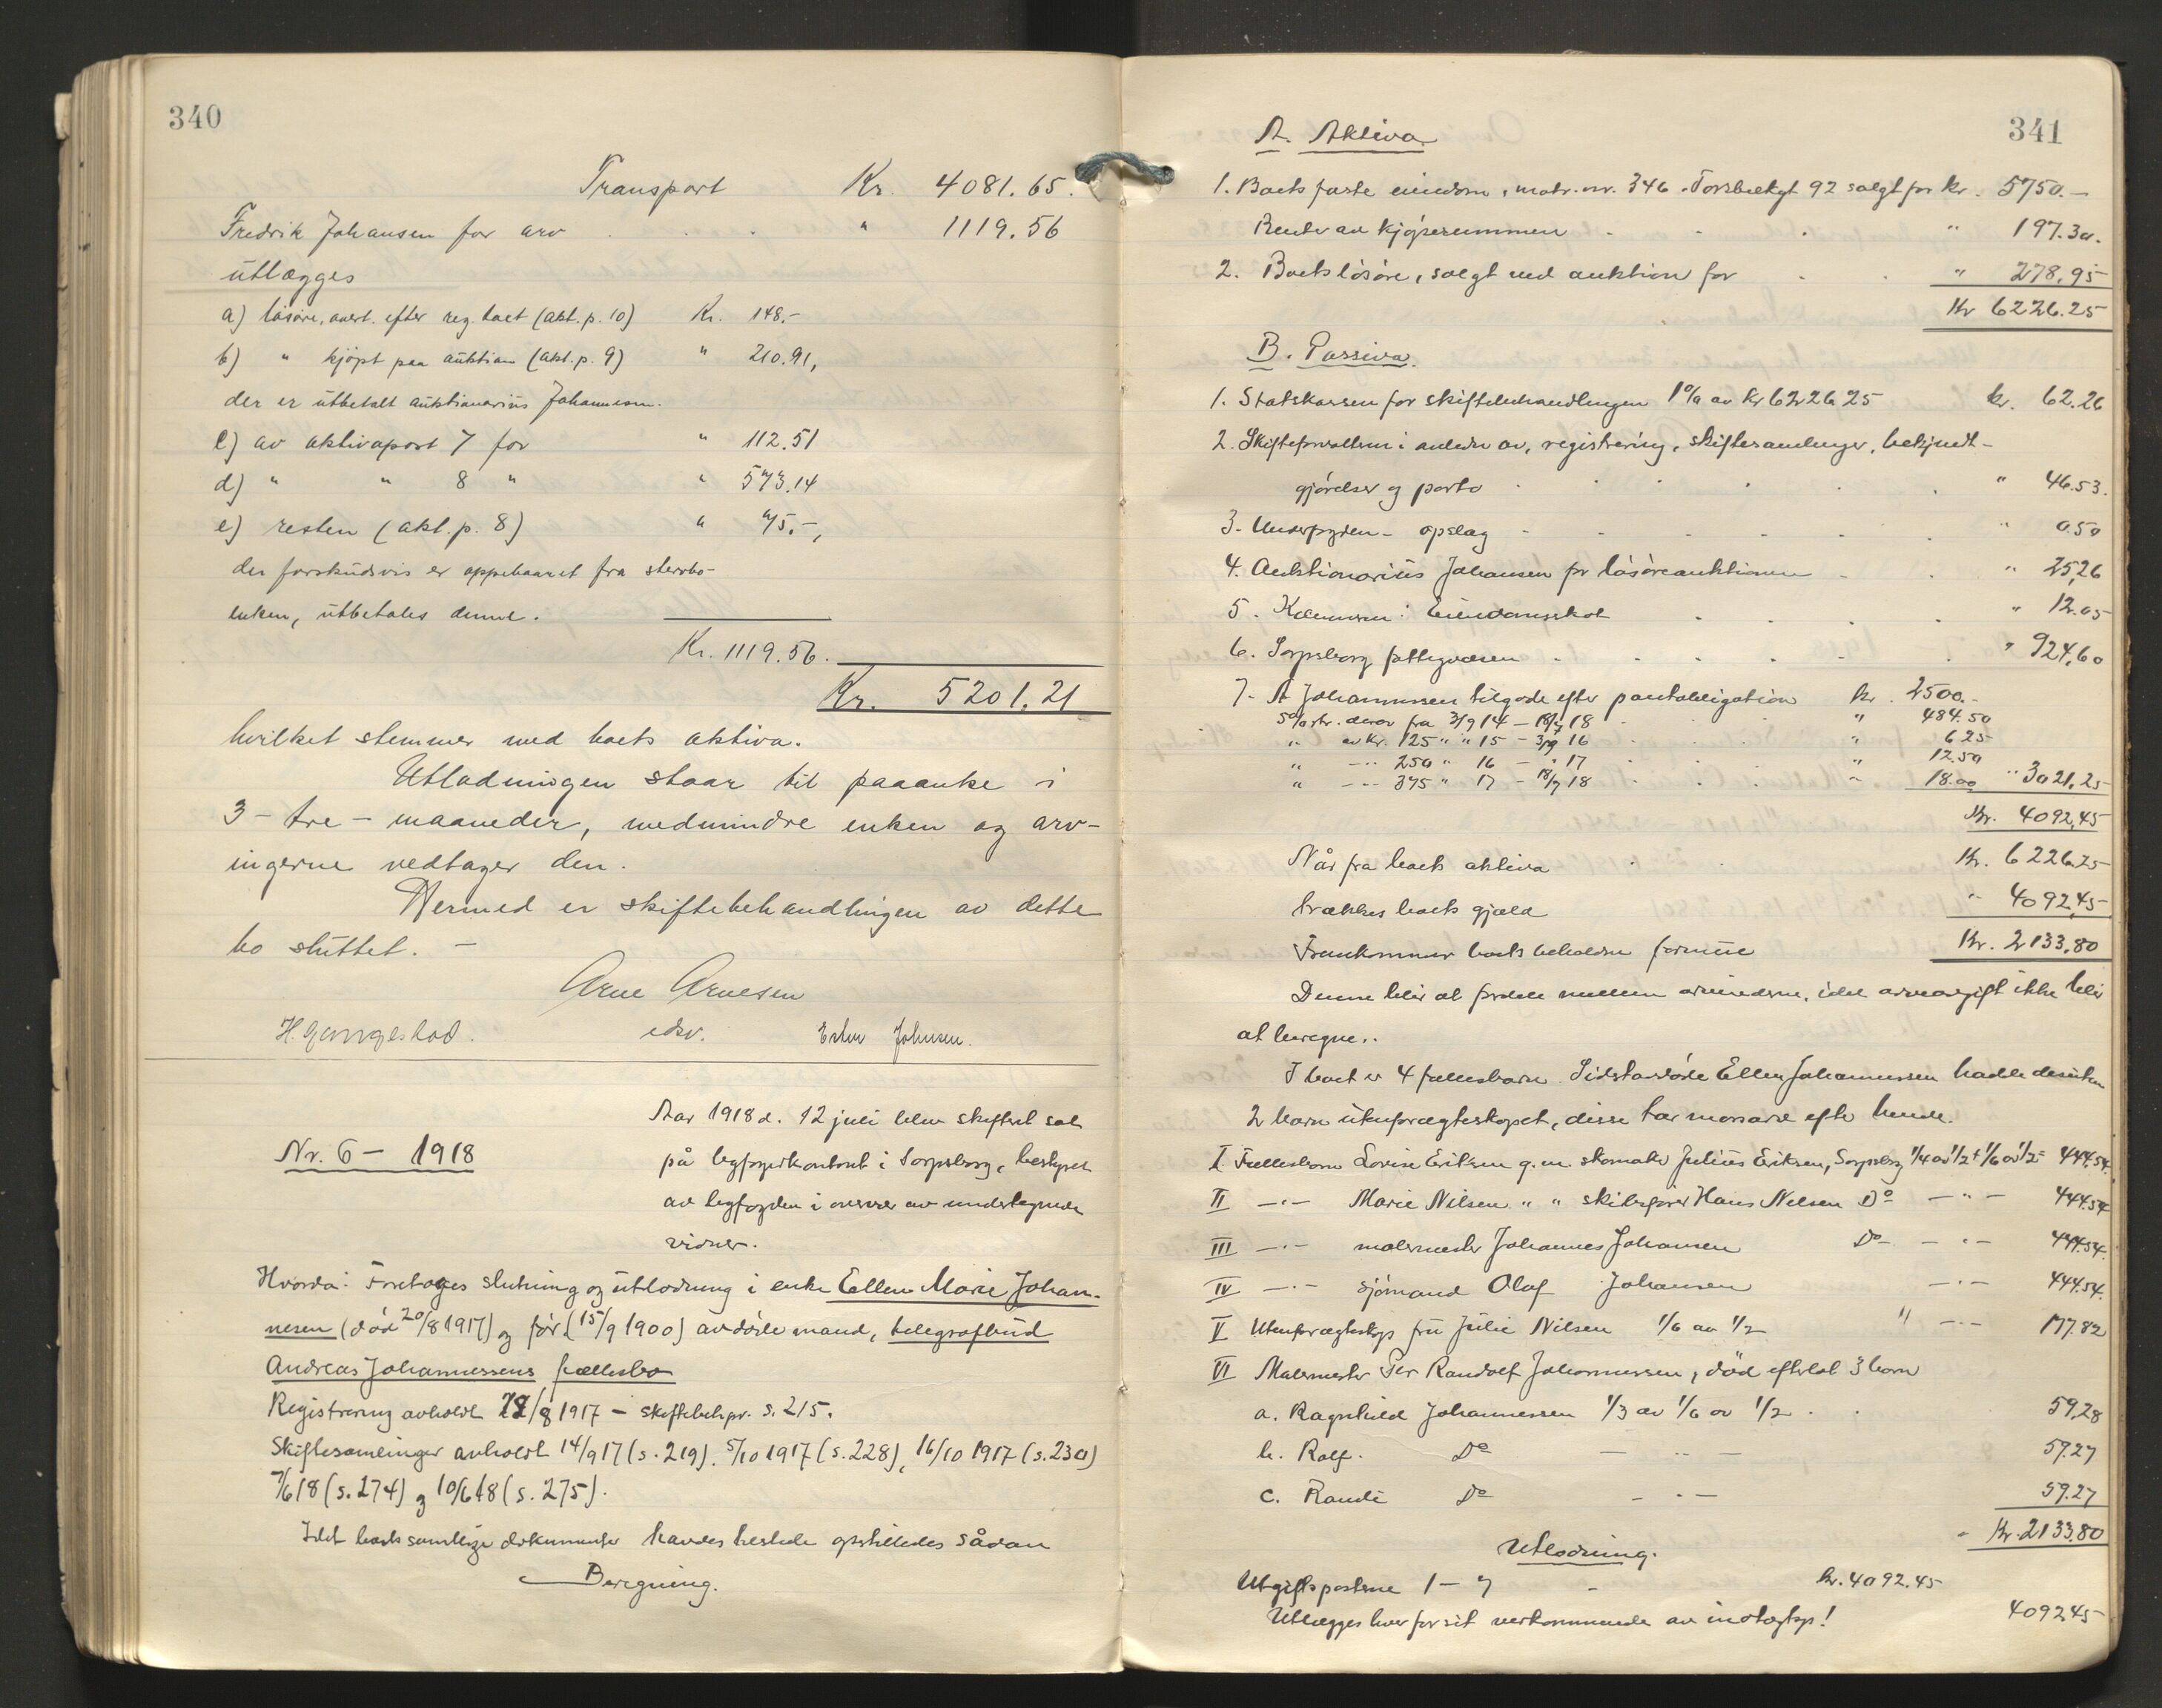 340
Transport Kr. 4081.65.
Fredrik Johansen for arv . . . " 1119.56
utlægges
a) løsøre, overt. efter reg. boet (akt. p. 10) Kr. 148.-
b) " kjøpt paa auktion (akt. p. 9) " 210.91,
der er utbetalt auktionarius Johannesen.
c) av aktivapost 7 for " 112.51
d) " " 8 " " 573.14
e) resten (akt. p. 8) " 75.-,
der forskudsvis er oppebaaret fra stervbo-
enken, utbetales denne.
Kr. 1119.56.
Kr. 5201.21
hvilket stemmer med boets aktiva.
Utlodningen staar til paaanke i
3 - tre - maaneder, medmindre enken og arv-
ingerne vedtager den.
Hermed er skiftebehandlingen av dette
bo sluttet. -
Arne Arnesen
H. Gjengestad. edsv. Ester Johnsen.
Nr. 6 - 1918
Aar 1918 d. 12 juli blev skifteret sat
på byfogedkontoret i Sarpsborg, bestyret
av byfogden i overvær av undertegnede
vidner.
Hvorda: Foretoges slutning og utlodning i enke Ellen Marie Johan-
nesen (død 20/8 1917) og før (15/9 1900) avdøde mand, telegrafbud
Andreas Johannessens fællesbo
Registrering avholdt 28/8 1917 - skiftebeh.pr. s. 215.
Skiftesamlinger avholdt 14/9 17 (s. 219). 5/10 1917 (s. 228), 16/10 1917 (s. 230)
7/6 18 (s. 274) og 10/6 18 (s. 275).
Idet boets samtlige dokumenter havdes tilstede opstilledes sådan
Beregning.
341
A. Aktiva
1. Boets faste eiendom, matr. nr. 346 Torsbækgt 92 solgt for kr. 5750.-
Renter av kjøpesummen . . . " 197.30.
2. Boets løsøre, solgt ved auktion for . . " 278.95
Kr 6226.25
B. Passiva.
1. Statskassen for skiftebehandlingen 1% av Kr 6226 25 kr. 62.26
2. Skifteforvalteren i anledn av, registrering, skiftesamlinger, bekjendt-
gjørelser og porto . . . . " 46.53.
3. Underfogden - opslag - - - - . " 0.50
4. Auktionarius Johansen for løsøreauktionen - . " 25,26
5. Kæmneren: Eiendomsskat . . . " 12.05
6. Sarpsborg fattigvæsen - - . . - . " 924,60
7. A Johannessen tilgode efter pantobligation kr. 2500.-
5% rtr. derav fra 3/9 14 - 18/7 18 . . " 484.50
" av Kr. 125 " " 15 - 3/9 16 . . " 6 25
" - " - 250 " 16 - " 17 . " 12.50
" - - 375 " 17 - 18/7 18 . . " 18.00 " 3021,25
Kr. 4092,45
Når fra boets aktiva . . Kr. 6226 25
trækkes boets gjæld " 4092,45
Fremkommer boets beholdne formue Kr. 2133,80
Denne blir at fordele mellem arvingerne, idet arveavgift ikke blir
at beregne..
I boet er 4 fællesbarn. Sidstavdøde Ellen Johannessen hadde desuten
2 barn utenforægteskapet, disse tar morsarv efter hende.
I. Fællesbarn Lovise Eriksen g. m. skomaker Julius Eriksen, Sarpsborg 1/4 av 1/2 + 1/6 av 1/2 = 444.54.
II - " - Marie Nilsen " " skibsfører Hans Nilsen Do - " - 444.54
III - " - malermester Johannes Johansen Do - " - 444.54.
IV - " - sjømand Olaf Johansen - " - 444.54.
V Utenforægteskap fru Julie Nilsen 1/6 av 1/2 " - " - 177.82
VI Malermester Per Randolf Johannessen, død efterlot 3 barn
a. Ragnhild Johannessen 1/3 av 1/6 av 1/2 . . 59,28
b. Rolf. Do - " - 59.27
c. Randi Do - " - 59.27
Kr. 2133.80
Utlodning.
Utgiftsposterne 1 - 7 - kr. 4092.45
Utlægges hver for sit vedkommende av indtægtsp! 4092 45